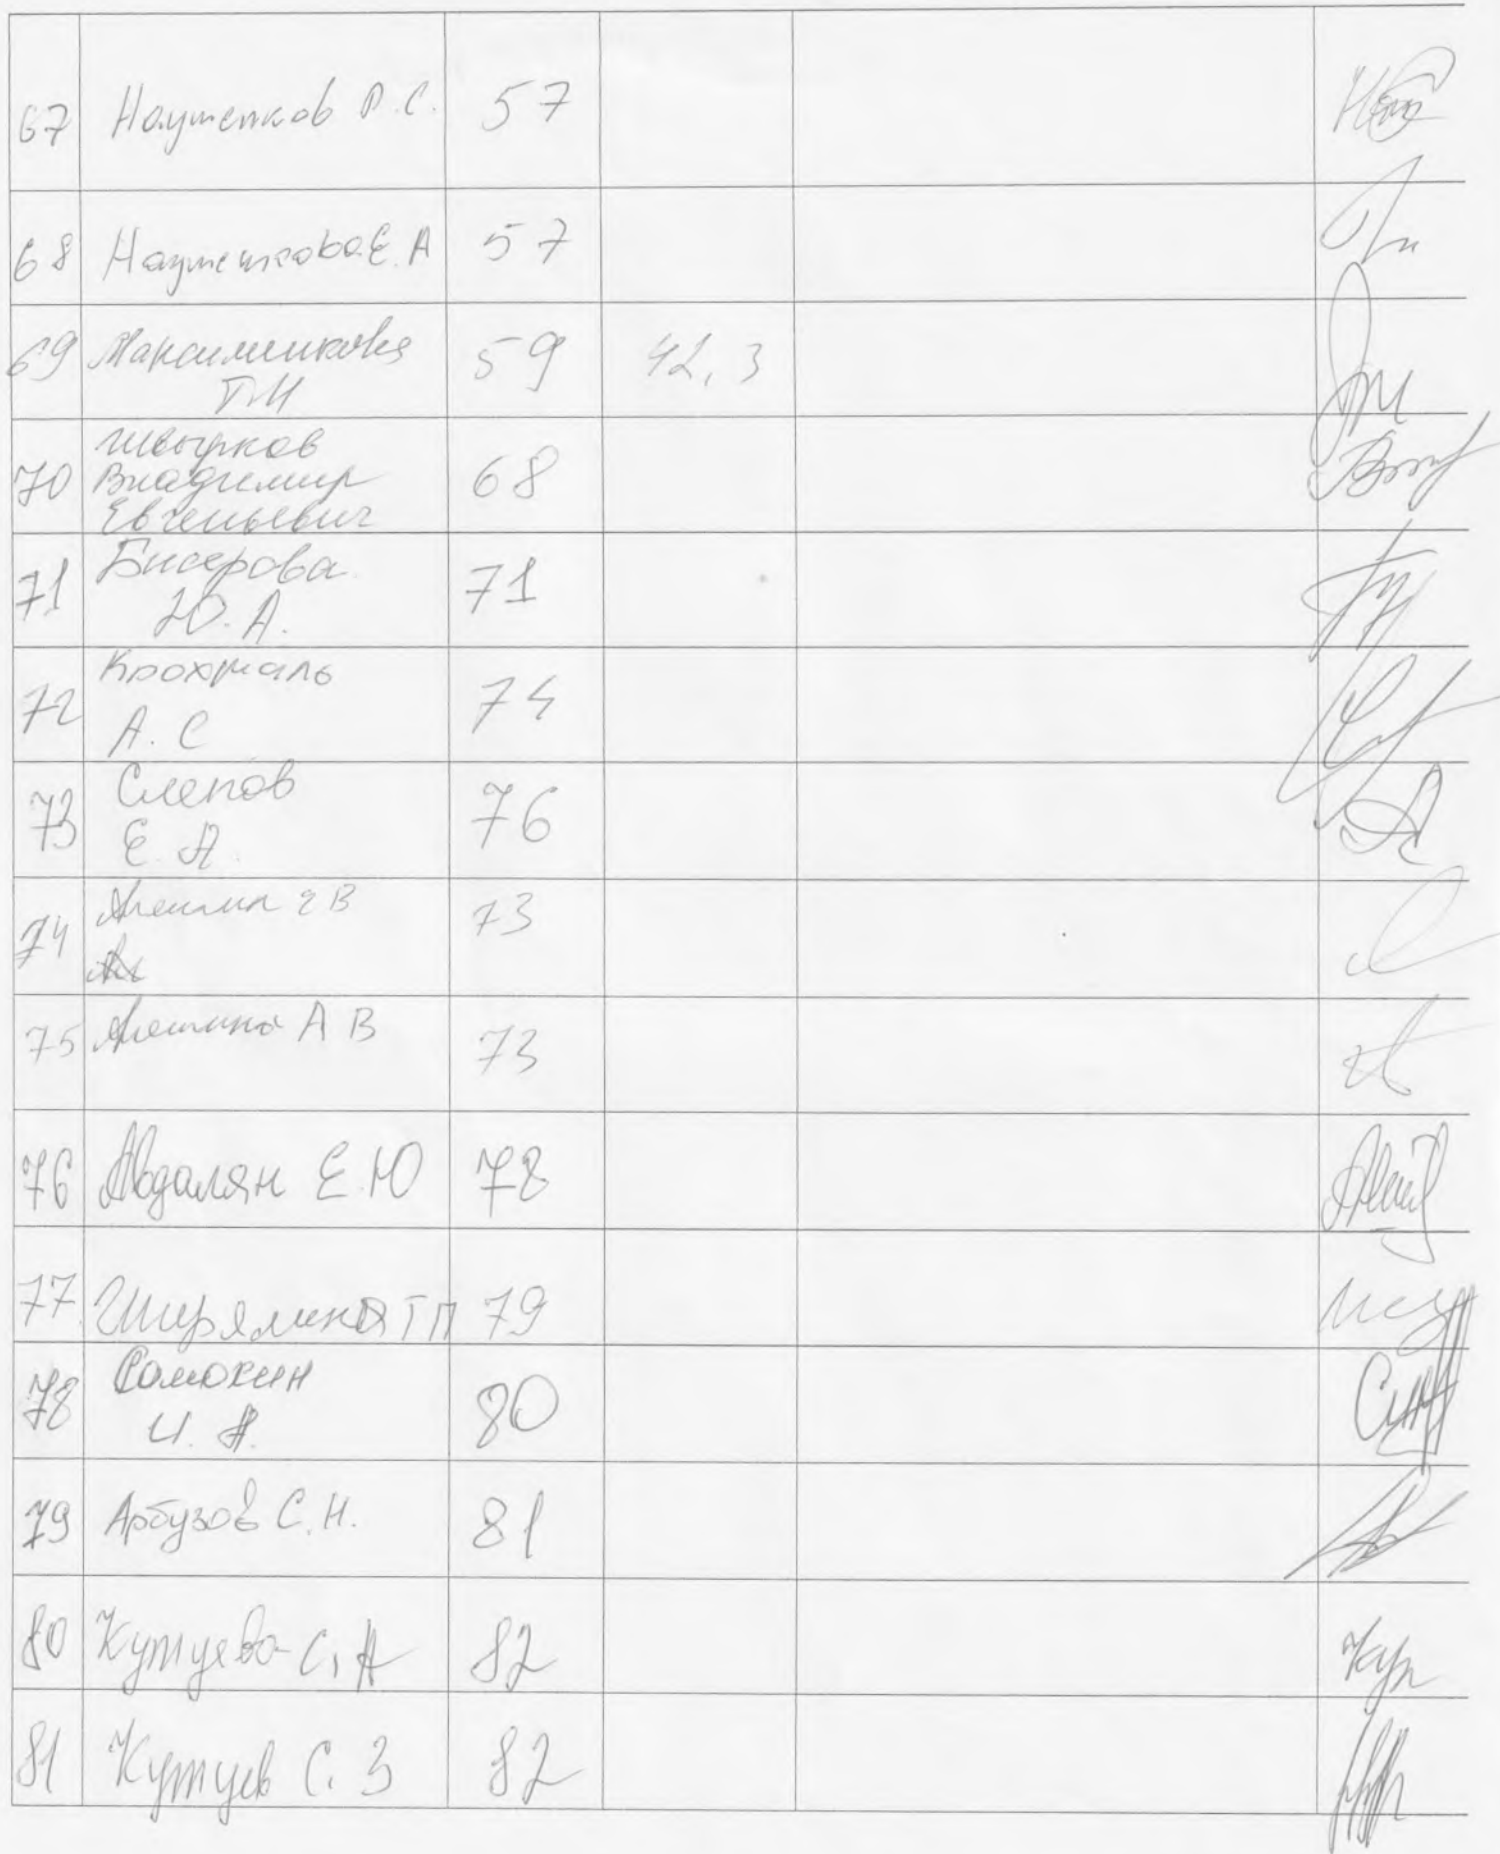 67 Наументков Р.С. 57
68 Наументкова Е.А 57
69 Максименкова 59 42,3
Т.И
Швырков
70 Владимир 68
Евгеньевич
Бисерова
71 Ю.А. 71
Крохмаль
72 А.С 74
Слепов
73 Е.А. 76
74 Алешин В 73
75 Алешина А В 73
76 Авдалян Е.Ю 78
77 Ширямина Т П 79
Самохин
78 И.А. 80
79 Арбузов С.Н. 81
80 Кутуева С.А 82
81 Кутуев С.З 82